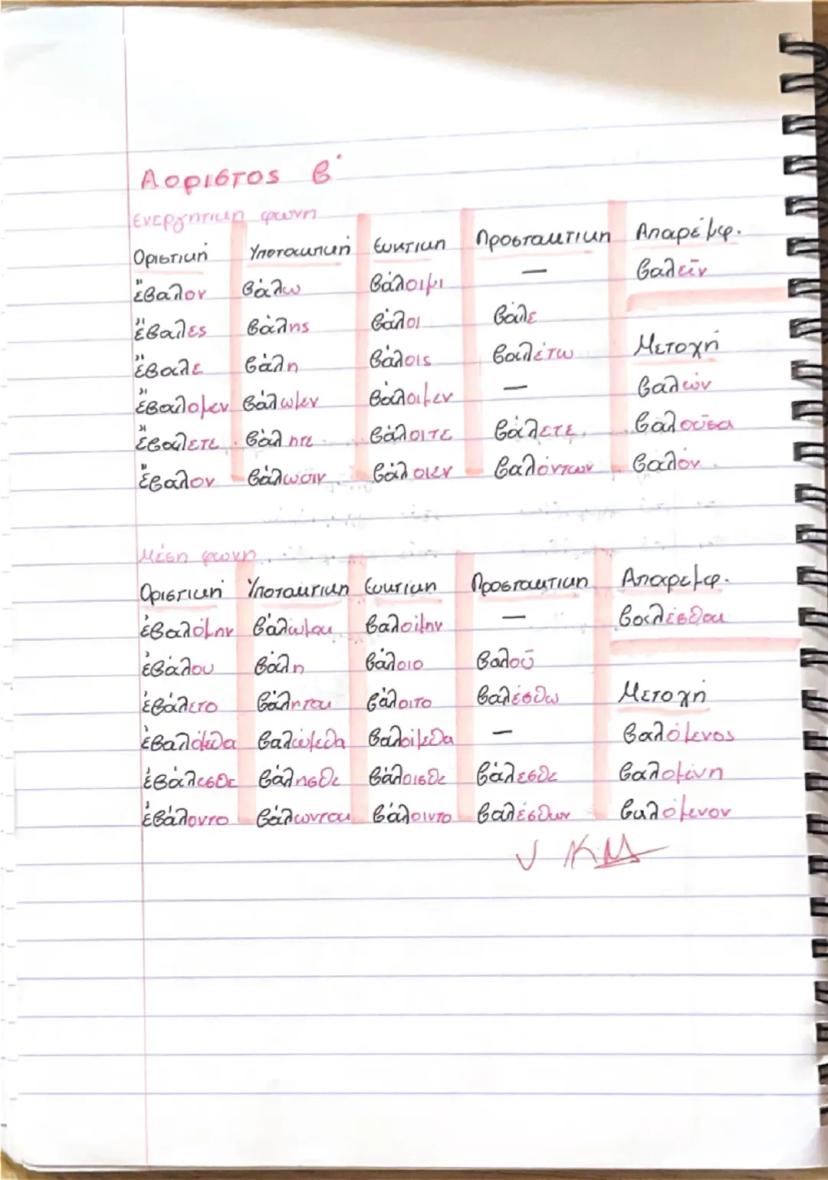 Αοριστος β΄
Ενεργητικη φωνη
Οριστική Υποτακτική Ευκτικη Προστακτικη Απαρέμφ.
ἔβαλον βάλω βάλοιμι — βαλεῖν
ἔβαλες βάλης βάλοι βάλε
ἔβαλε βάλη βάλοις βαλέτω Μετοχή
ἐβάλομεν βάλωμεν βάλοιμεν — βαλών
ἐβάλετε βάλητε βάλοιτε βάλετε βαλοῦσα
ἔβαλον βάλωσιν βάλοιεν βαλόντων βαλόν
Μέση φωνη
Οριστική Υποτακτικη Ευκτικη Προστακτικη Απαρεμφ.
ἐβαλόμην βάλωμαι βαλοίμην — βαλέσθαι
ἐβάλου βάλη βάλοιο βαλοῦ
ἐβάλετο βάληται βάλοιτο βαλέσθω Μετοχή
ἐβαλόμεθα βαλώμεθα βαλοίμεθα — βαλόμενος
ἐβάλεσθε βάλησθε βάλοισθε βάλεσθε βαλομένη
ἐβάλοντο βάλωνται βάλοιντο βαλέσθων βαλόμενον
√ ΚΜ